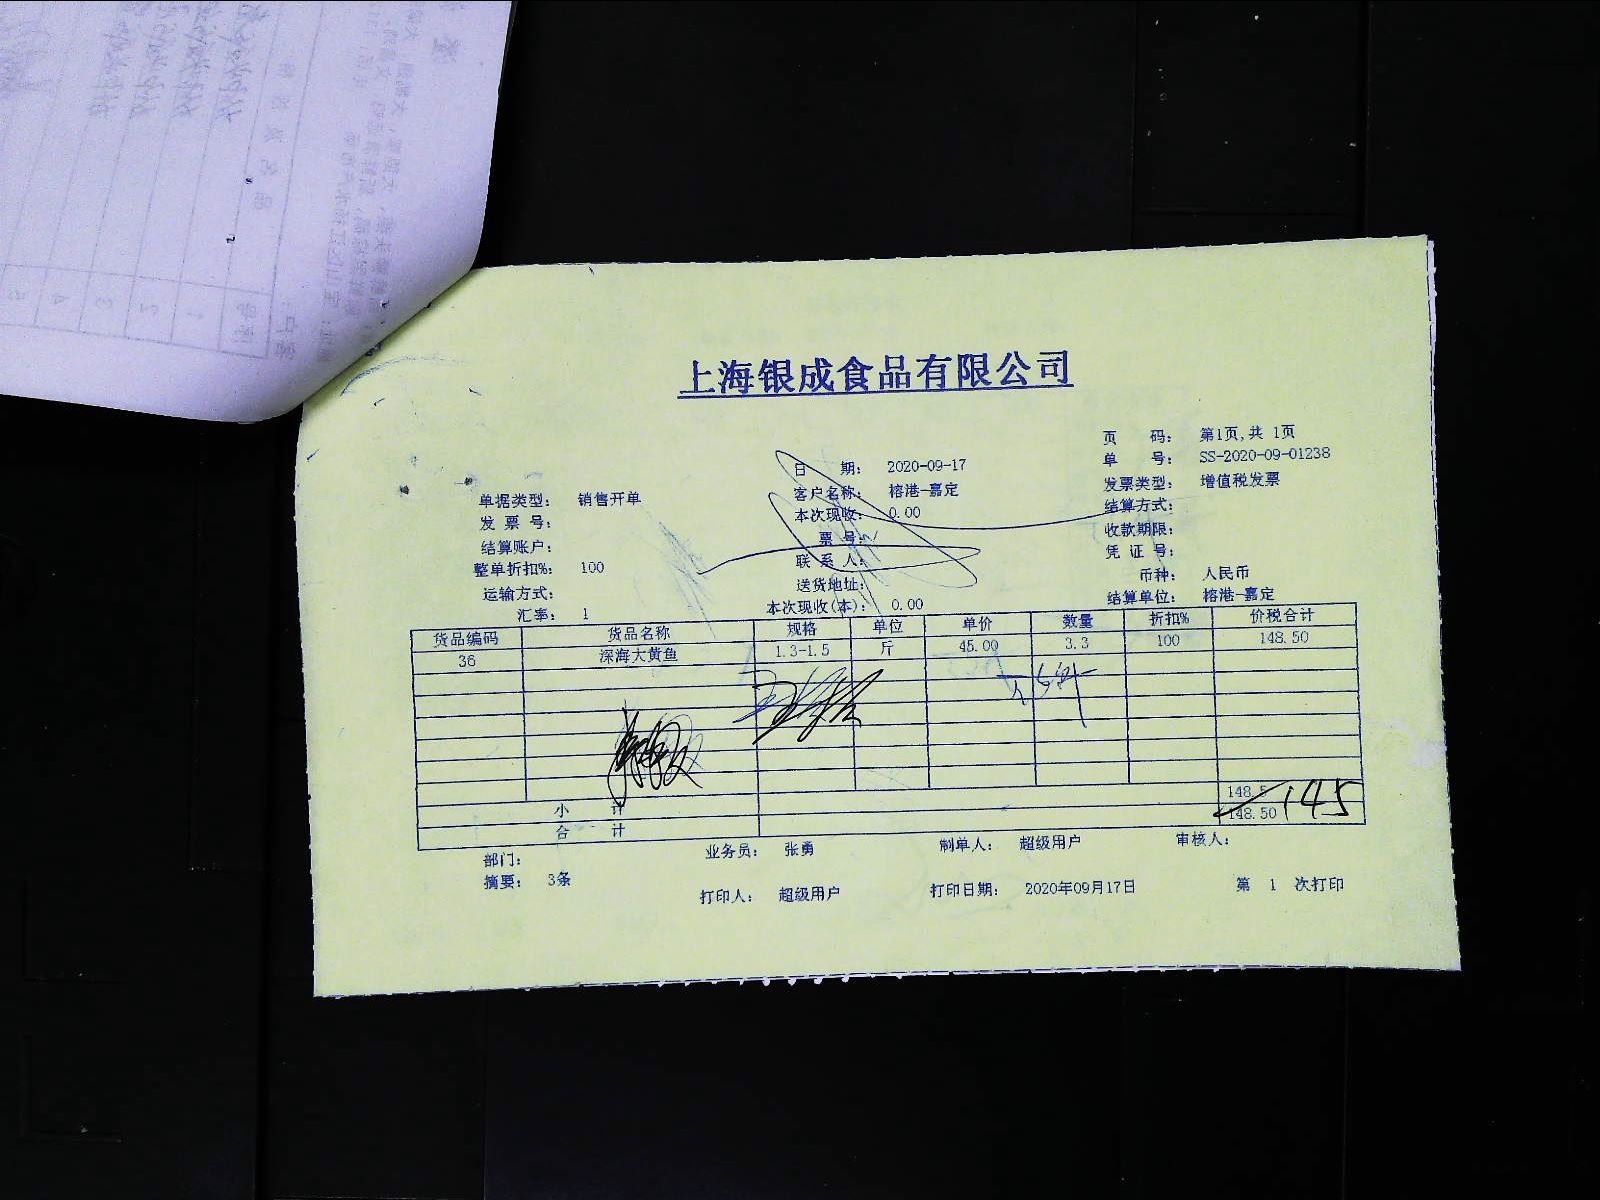 上海银成食品有限公司
页 码: 第1页,共 1页
日 期: 2020-09-17 单 号: SS-2020-09-01238
单据类型: 销售开单 客户名称: 榕港-嘉定 发票类型: 增值税发票
发 票 号: 本次现收: 0.00 结算方式:
结算账户: 票 号: 收款期限:
整单折扣%: 100 联 系 人: 凭 证 号:
运输方式: 送货地址: 币种: 人民币
汇率: 1 本次现收(本): 0.00 结算单位: 榕港-嘉定
货品编码 货品名称 规格 单位 单价 数量 折扣% 价税合计
36 深海大黄鱼 1.3-1.5 斤 45.00 3.3 100 148.50
小 计 148.5
合 计 148.50 145
部门: 业务员: 张勇 制单人: 超级用户 审核人:
摘要: 3条
打印人: 超级用户 打印日期: 2020年09月17日 第 1 次打印